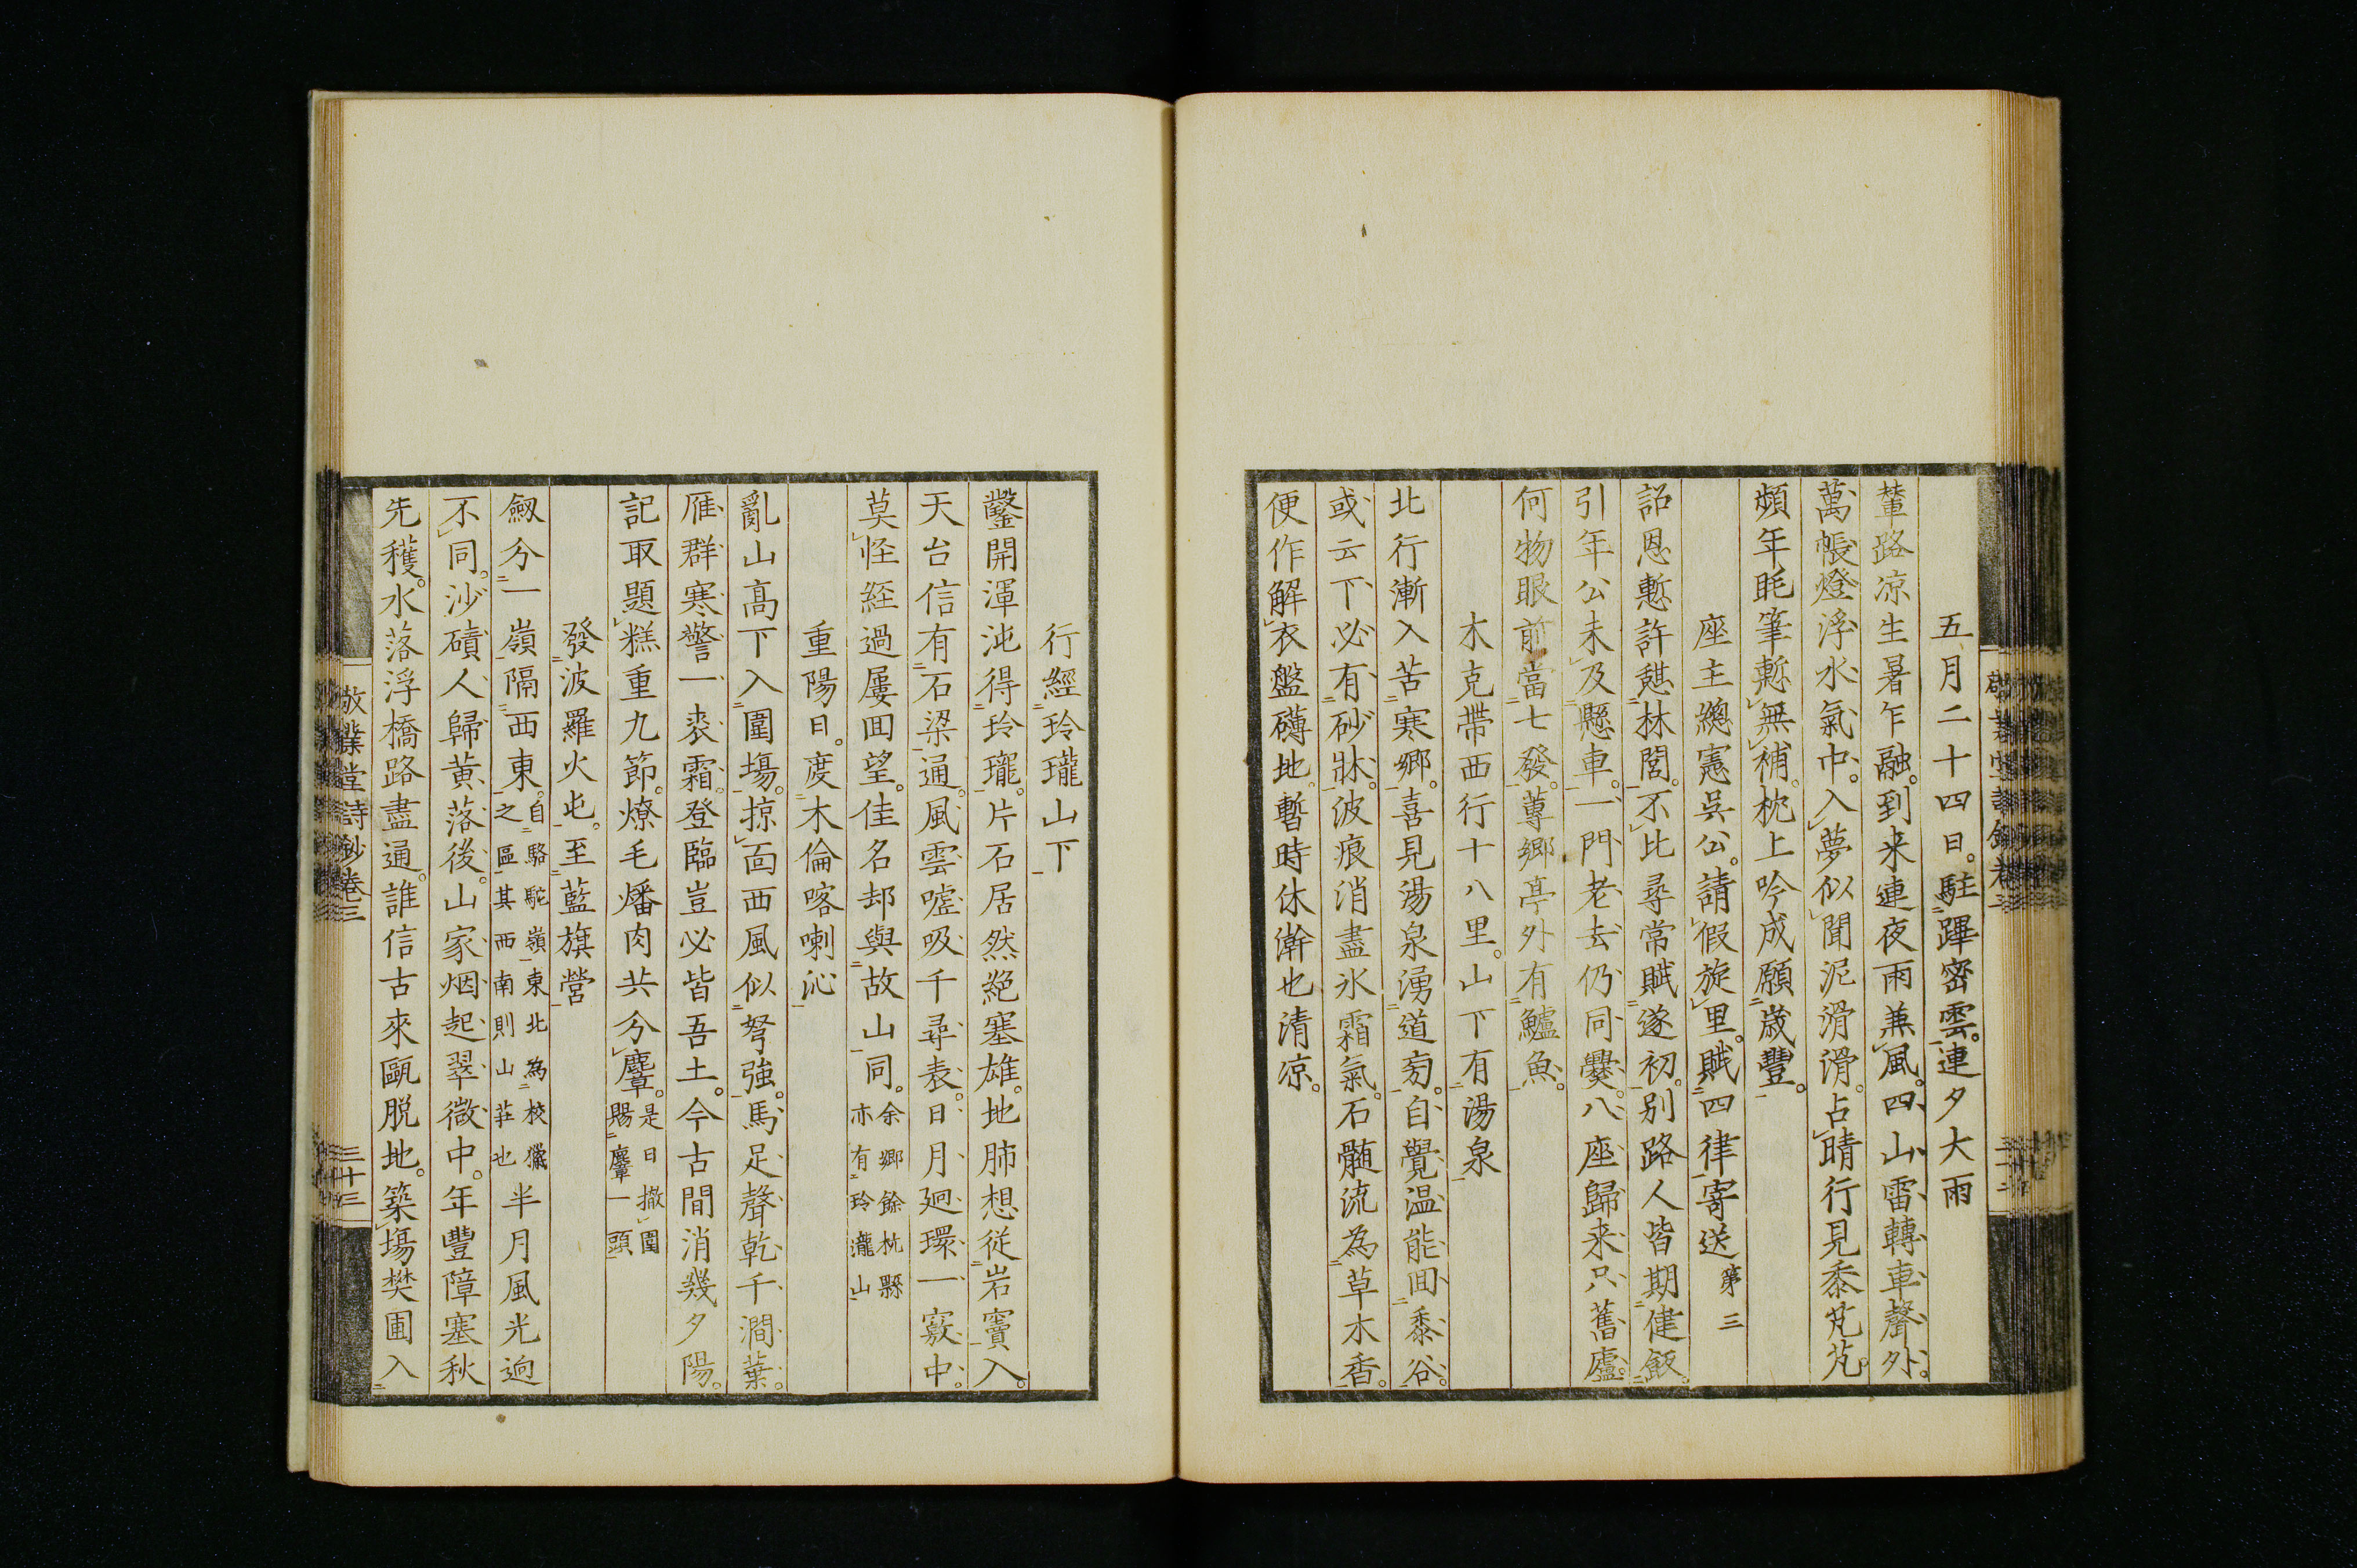 五月二十四日。駐蹕密雲。連夕大雨
輦路凉生暑乍融。到来連夜雨兼風。四山雷轉車聲外。
萬帳燈浮水氣中。入夢似聞泥滑滑。占晴行見黍芃芃。
頻年眊筆慙無補。枕上吟成願歳豐。
座主總憲吳公。請假旋里。賦四律寄送 第三
詔恩慙許憇林閭。不比尋常賦遂初。别路人皆期健飯。
引年公未及懸車。一門老去仍同爨。八座歸来只舊廬。
何物眼前當七發。蓴鄉亭外有鱸魚。
木克帶西行十八里。山下有湯泉
北行漸入苦寒鄉。喜見湯泉湧道旁。自覺温能回黍谷。
或云下必有砂牀。波痕消盡氷霜氣。石髓流為草木香。
便作解衣盤礴地。暫時休澣也清凉。
行經玲瓏山下
鑿開渾沌得玲瓏。片石居然絶塞雄。地肺想從岩竇入。
天台信有石梁通。風雲噓吸千尋表。日月廻環一竅中。
莫怪経過屢回望。佳名却與故山同。余鄉餘杭縣亦有玲瀧山
重陽日。度木倫喀喇沁
亂山高下入圍塲。掠面西風似弩強。馬足聲乾千澗葉。
雁群寒警一裘霜。登臨豈必皆吾土。今古間消幾夕陽。
記取題糕重九節。燎毛燔肉共分麞。是日撤圍賜麞一頭
發波羅火屯。至藍旗營
劔分一嶺隔西東。自駱駝嶺東北為校獵之區其西南則山莊也 半月風光逈
不同。沙磧人歸黄落後。山家烟起翠微中。年豐障塞秋
先穫。水落浮橋路盡通。誰信古來甌脱地。築塲樊圃入
敬業堂詩鈔卷三
三十三